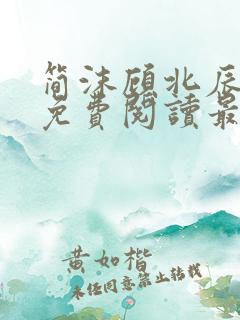 简沫顾北辰
免費閱讀最
黄如楷
未经同意禁止转载